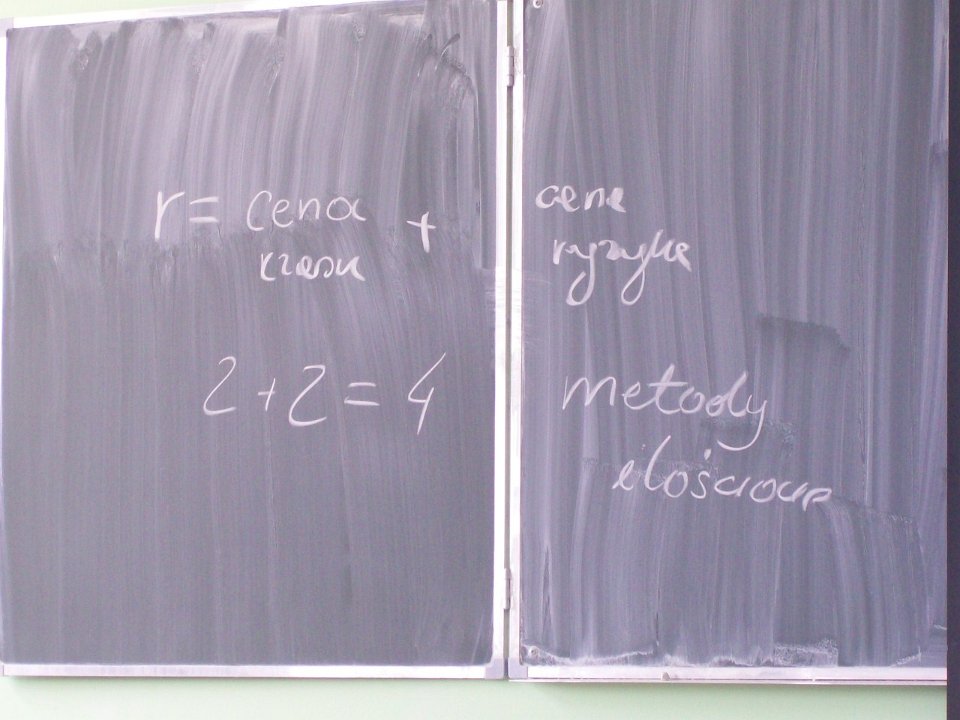 r = cena + cena
czasu ryzyka
2 + 2 = 4
metody
ilościowe